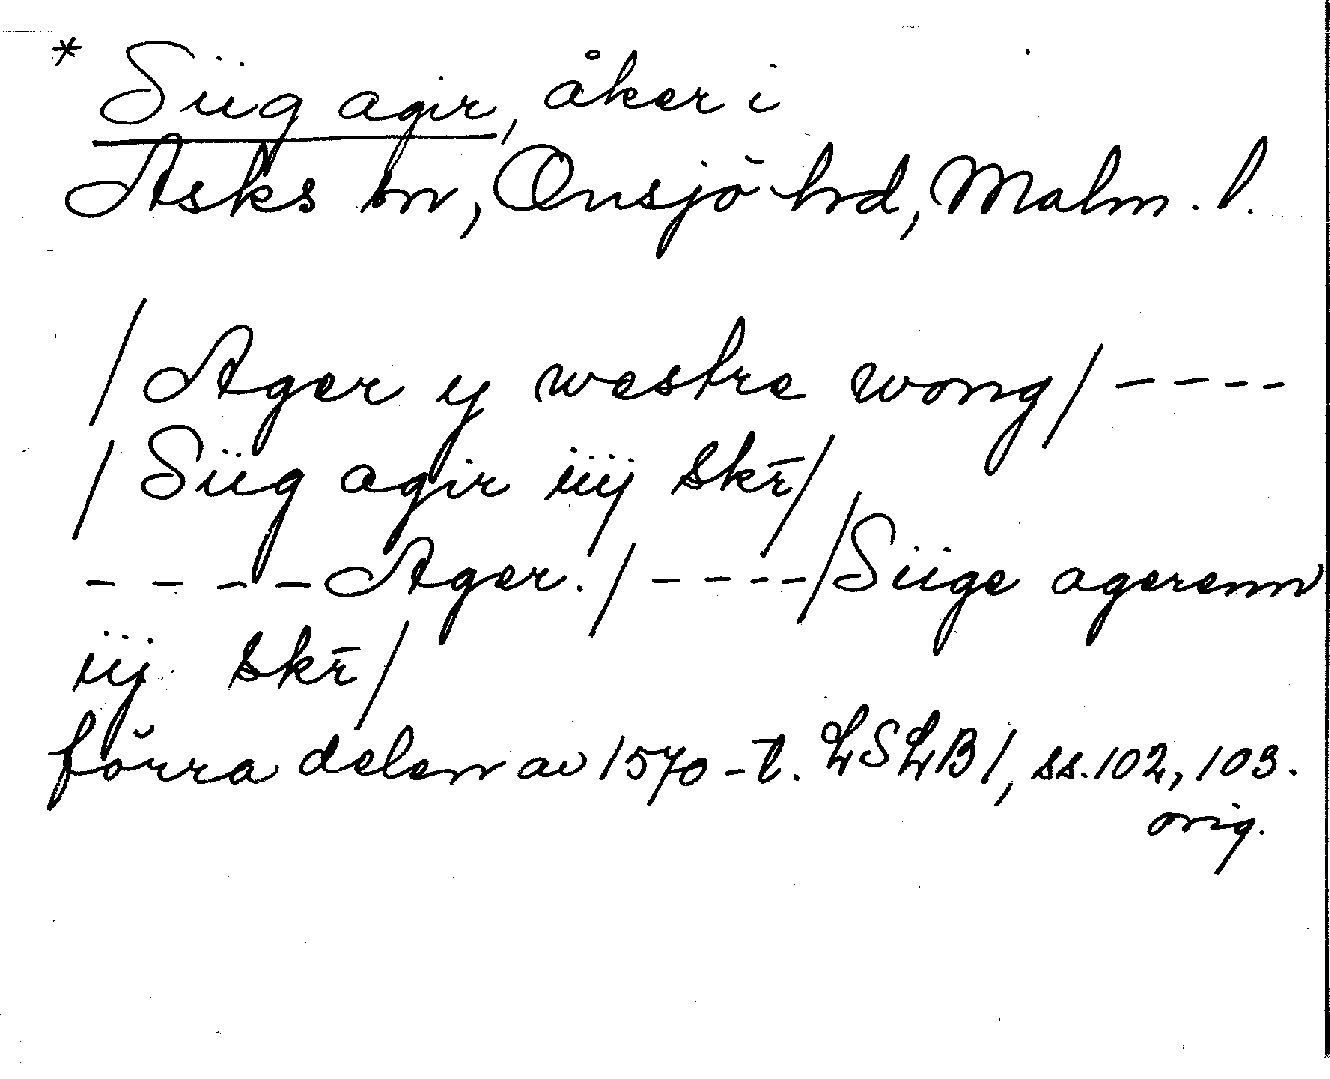 * Siig agir, åker i
Asks sn, Onsjö hd, Malm. l.
/Ager y westre wong/ ----
/Siig agir iiij skr̄/
----Ager./ ----/Siige agerenn
iij skr̄/
förra delen av 1570-t. LSLB1, ss. 102, 103.
orig.